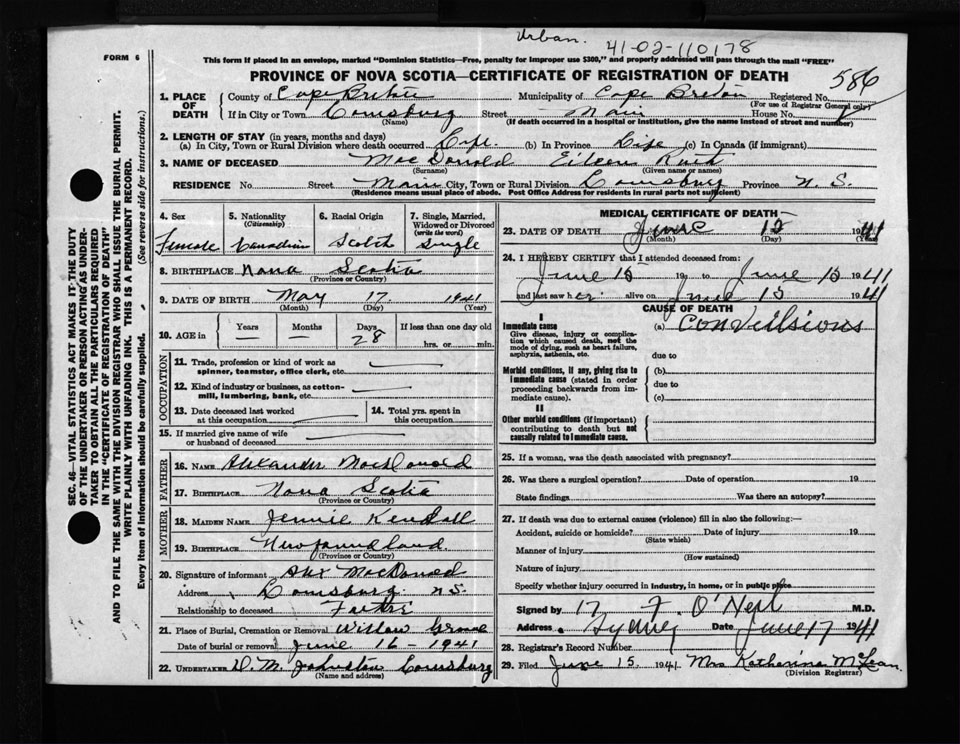 Urban. 41-02-110178
FORM 6
This form if placed in an envelope, marked "Dominion Statistics—Free, penalty for improper use $300," and properly addressed will pass through the mail "FREE"
PROVINCE OF NOVA SCOTIA—CERTIFICATE OF REGISTRATION OF DEATH 586
1. PLACE OF DEATH County of Cape Breton Municipality of Cape Breton Registered No.
(For use of Registrar General only)
If in City or Town Louisburg Street Main House No.
(Name) (If death occurred in a hospital or institution, give the name instead of street and number)
2. LENGTH OF STAY (in years, months and days)
(a) In City, Town or Rural Division where death occurred Life. (b) In Province Life (c) In Canada (if immigrant)
3. NAME OF DECEASED MacDonald Eileen Ruth
(Surname) (Given name or names)
RESIDENCE No. Street Main City, Town or Rural Division Louisburg Province N. S.
(Residence means usual place of abode. Post Office Address for residents in rural parts not sufficient)
4. Sex Female
5. Nationality (Citizenship) Canadian
6. Racial Origin Scotch
7. Single, Married, Widowed or Divorced (write the word) Single
8. BIRTHPLACE Nova Scotia
(Province or Country)
9. DATE OF BIRTH May 17 1941
(Month) (Day) (Year)
10. AGE in Years — Months — Days 28 If less than one day old hrs. or min.
OCCUPATION
11. Trade, profession or kind of work as spinner, teamster, office clerk, etc.
12. Kind of industry or business, as cotton-mill, lumbering, bank, etc.
13. Date deceased last worked at this occupation
14. Total yrs. spent in this occupation
15. If married give name of wife or husband of deceased
FATHER
16. NAME Alexander MacDonald
17. BIRTHPLACE Nova Scotia
(Province or Country)
MOTHER
18. MAIDEN NAME Jennie Kendall
19. BIRTHPLACE Newfoundland
(Province or Country)
20. Signature of informant Alex MacDonald
Address Louisburg N.S.
Relationship to deceased Father
21. Place of Burial, Cremation or Removal Willow Grove
Date of burial or removal June 16 1941
22. UNDERTAKER D. M. Johnston Louisburg
(Name and address)
MEDICAL CERTIFICATE OF DEATH
23. DATE OF DEATH June 15 1941
(Month) (Day) (Year)
24. I HEREBY CERTIFY that I attended deceased from:
June 15 19 to June 15 1941
and last saw her alive on June 15 1941
CAUSE OF DEATH
I
Immediate cause (a) Convulsions
Give disease, injury or complication which caused death, not the mode of dying, such as heart failure, asphyxia, asthenia, etc.
due to
Morbid conditions, if any, giving rise to immediate cause (stated in order proceeding backwards from immediate cause).
(b)
due to
(c)
II
Other morbid conditions (if important) contributing to death but not causally related to immediate cause.
25. If a woman, was the death associated with pregnancy?
26. Was there a surgical operation? Date of operation 19
State findings Was there an autopsy?
27. If death was due to external causes (violence) fill in also the following:—
Accident, suicide or homicide? Date of injury 19
(State which)
Manner of injury
(How sustained)
Nature of injury
Specify whether injury occurred in industry, in home, or in public place
Signed by F. O'Neil M.D.
Address Sydney Date June 17 1941
28. Registrar's Record Number
29. Filed June 15. 1941. Mrs Katherine McLean.
(Division Registrar)
SEC. 46—VITAL STATISTICS ACT MAKES IT THE DUTY
OF THE UNDERTAKER OR PERSON ACTING AS UNDER-
TAKER TO OBTAIN ALL THE PARTICULARS REQUIRED
IN THE "CERTIFICATE OF REGISTRATION OF DEATH"
AND TO FILE THE SAME WITH THE DIVISION REGISTRAR WHO SHALL ISSUE THE BURIAL PERMIT.
WRITE PLAINLY WITH UNFADING INK. THIS IS A PERMANENT RECORD.
Every item of information should be carefully supplied. (See reverse side for instructions.)